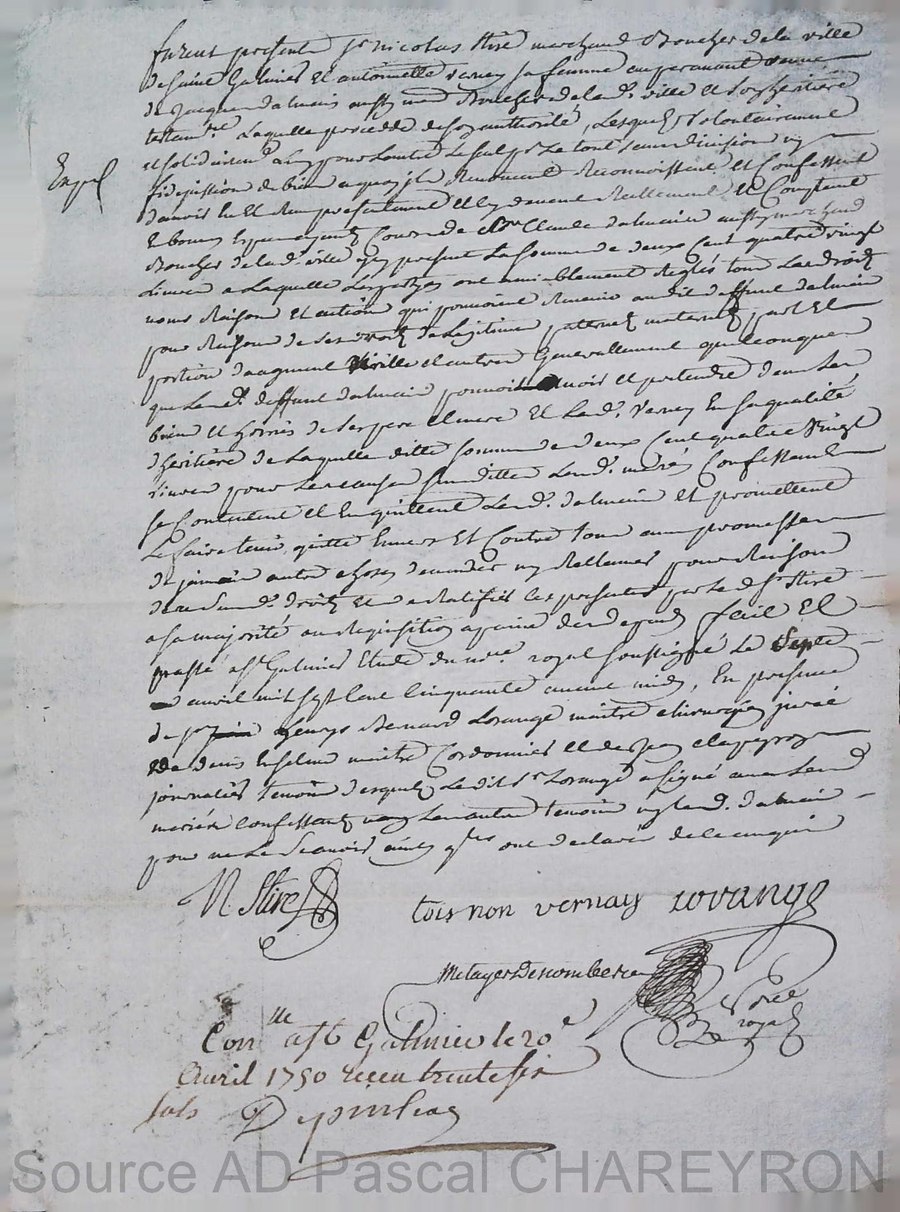 furent presents sr nicolas Stire marchand Boucher de la ville
de saint Galmier Et antoinette Vernay sa femme auparavant veuve
de Jacques dalmais aussy md Boucher de lad. ville et son heritiere
testamre laquelle procedde de son authorité, Lesquels volontairement
et solidairemt l'un pour lautre Le seul pr Le tout sans division ny
Expé
fidejussion de bien a quoy jls Renoncent Reconnoissent et Confessent
davoir eu Et Reçu presentement Réellement Et Comptant
En bonnes Espesses ayant Cours de sr Claude dalmais aussy marchand
Boucher de lad. ville icy present La somme de deux Cent quatre vingt
Livres a Laquelle Les partyes ont amiablement Réglés tous Les droits
noms Raisons Et actions qui pouvoient Revenir audit deffunt dalmais
pour Raison de ses droits de Legitime paternels maternels part Et
portion d'augment Virille et autres Generallement quelconques
que Led. deffunt dalmais pouvoit avoir et pretendre dans Les
biens et hoiries de ses pere et mere Et Lad. Vernay En sa qualité
d'heritiere de Laquelle ditte somme de deux Cent quatre Vingt
Livres pour Les causes susdittes Lesd. mariés Confessants
se Contentent et En quittent Led. dalmais Et promettent
Le faire tenir quitte Envers Et Contre tous avec promesse
de jamais autre chose demander ny Rellamer pour Raison
desd. droits Et de Ratifier Les presentes par Led. sr Stire
a sa majorité ou Requisition a peine de depends fait Et
passé a st Galmier Etude du nore royal soussigné Le Sept
avril mil sept Cent Cinquante avant midy, En presence
de sr henry Benard Lorange maitre chirurgien juré
de denis Enselme maitre Cordonnier et de Jean clapeyron
journalier temoins desquels Ledit sr Lorange a signé avec Lesd.
mariés Confessants non Les autres temoins ny led. dalmais
pour ne Le sçavoir ainsy qils ont declaré de ce enquis
N. Stire toisnon vernay lorange
Metayer Descombes
nore
royal
Conlle a st Galmier le 20e
Avril 1750 receu trente six
sols
Source AD Pascal CHAREYRON